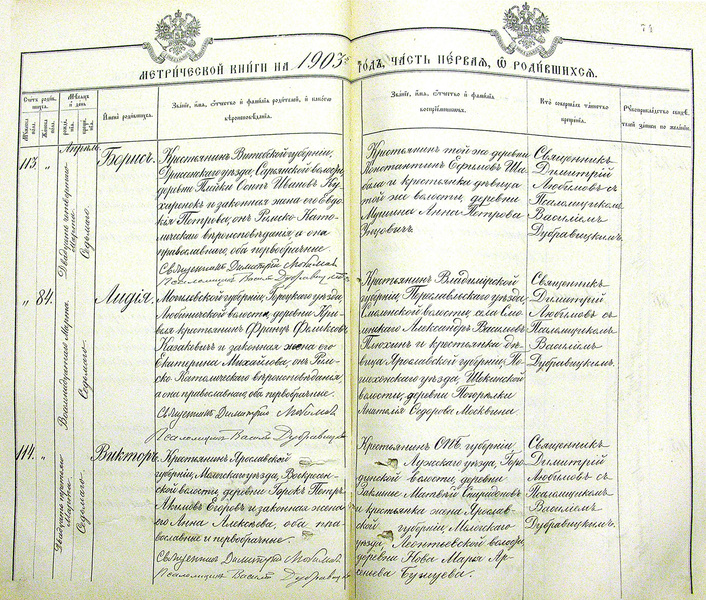 74
МЕТРИЧЕСКОЙ КНИГИ НА 1903й ГОДЪ, ЧАСТЬ ПЕРВАЯ, Ѿ РОДИВШИХСЯ.
Счетъ родив-
шихся.
Мужеска
пола.
Женска
пола.
Мѣсяцъ
и день
рожде-
нія.
креще-
нія.
Имена родившихся.
Званіе, имя, отчество и фамилія родителей, и какого
вѣроисповѣданія.
Званіе, имя, отчество и фамилія
воспріемниковъ.
Кто совершалъ таинство
крещенія.
Рукоприкладство свидѣ-
телей записи по желанію.
Апрѣль
113.
"
Двадцать четвертаго
Марта.
Седьмаго.
Борисъ.
Крестьянинъ Витебской губерніи,
Дриссенскаго уѣзда, Сарьянской волости,
деревни Осипъ Ивановъ Ку-
харенокъ и законная жена его Евдо-
кія Петрова, онъ Римско-Като-
лическаго вѣроисповѣданія, а она
православнаго, оба первобрачные.
Священникъ Димитрій Любимовъ
Псаломщикъ Василій Дубравицкій
Крестьянинъ той же деревни
Константинъ Ефимовъ Ша-
бала и крестьянка дѣвица
той же волости, деревни
Анна Петрова
Священникъ
Димитрій
Любимовъ съ
Псаломщикомъ
Василіемъ
Дубравицкимъ.
"
84.
Восемнадцатаго Марта.
Седьмаго.
Лидія.
Могилевской губерніи, Горецкаго уѣзда,
волости, деревни Кри-
вая крестьянинъ Францъ Феликсовъ
Казакевичъ и законная жена его
Екатерина Михайлова, онъ Рим-
ско-Католическаго вѣроисповѣданія,
а она православнаго, оба первобрачные.
Священникъ Димитрій Любимовъ
Псаломщикъ Василій Дубравицкій
Крестьянинъ Владимірской
губерніи, Переславльскаго уѣзда,
Смоленской волости, села Смо-
ленскаго Александръ Васильевъ
Плохинъ и крестьянка дѣ-
вица Ярославской губерніи, По-
шехонскаго уѣзда, Щекинской
волости, деревни
Анатолія Сидорова Москвина
Священникъ
Димитрій
Любимовъ съ
Псаломщикомъ
Василіемъ
Дубравицкимъ.
114.
"
Двадцать третьяго
Марта.
Седьмаго.
Викторъ.
Крестьянинъ Ярославской
губерніи, Мологскаго уѣзда, Воскресен-
ской волости, деревни Горокъ Петръ
Егоровъ и законная жена
его Анна Алексѣева, оба пра-
вославные и первобрачные.
Священникъ Димитрій Любимовъ
Псаломщикъ Василій Дубравицкій
Крестьянинъ СПБ. губерніи
Лужскаго уѣзда, Горо-
денской волости, деревни
Заклинье Матвѣй Спиридоновъ
и крестьянка жена Ярослав-
ской губерніи, Мологскаго
уѣзда, Леонтьевской волости,
деревни Нова Марѳа Ар-
сеньева Бунцева.
Священникъ
Димитрій
Любимовъ съ
Псаломщикомъ
Василіемъ
Дубравицкимъ.